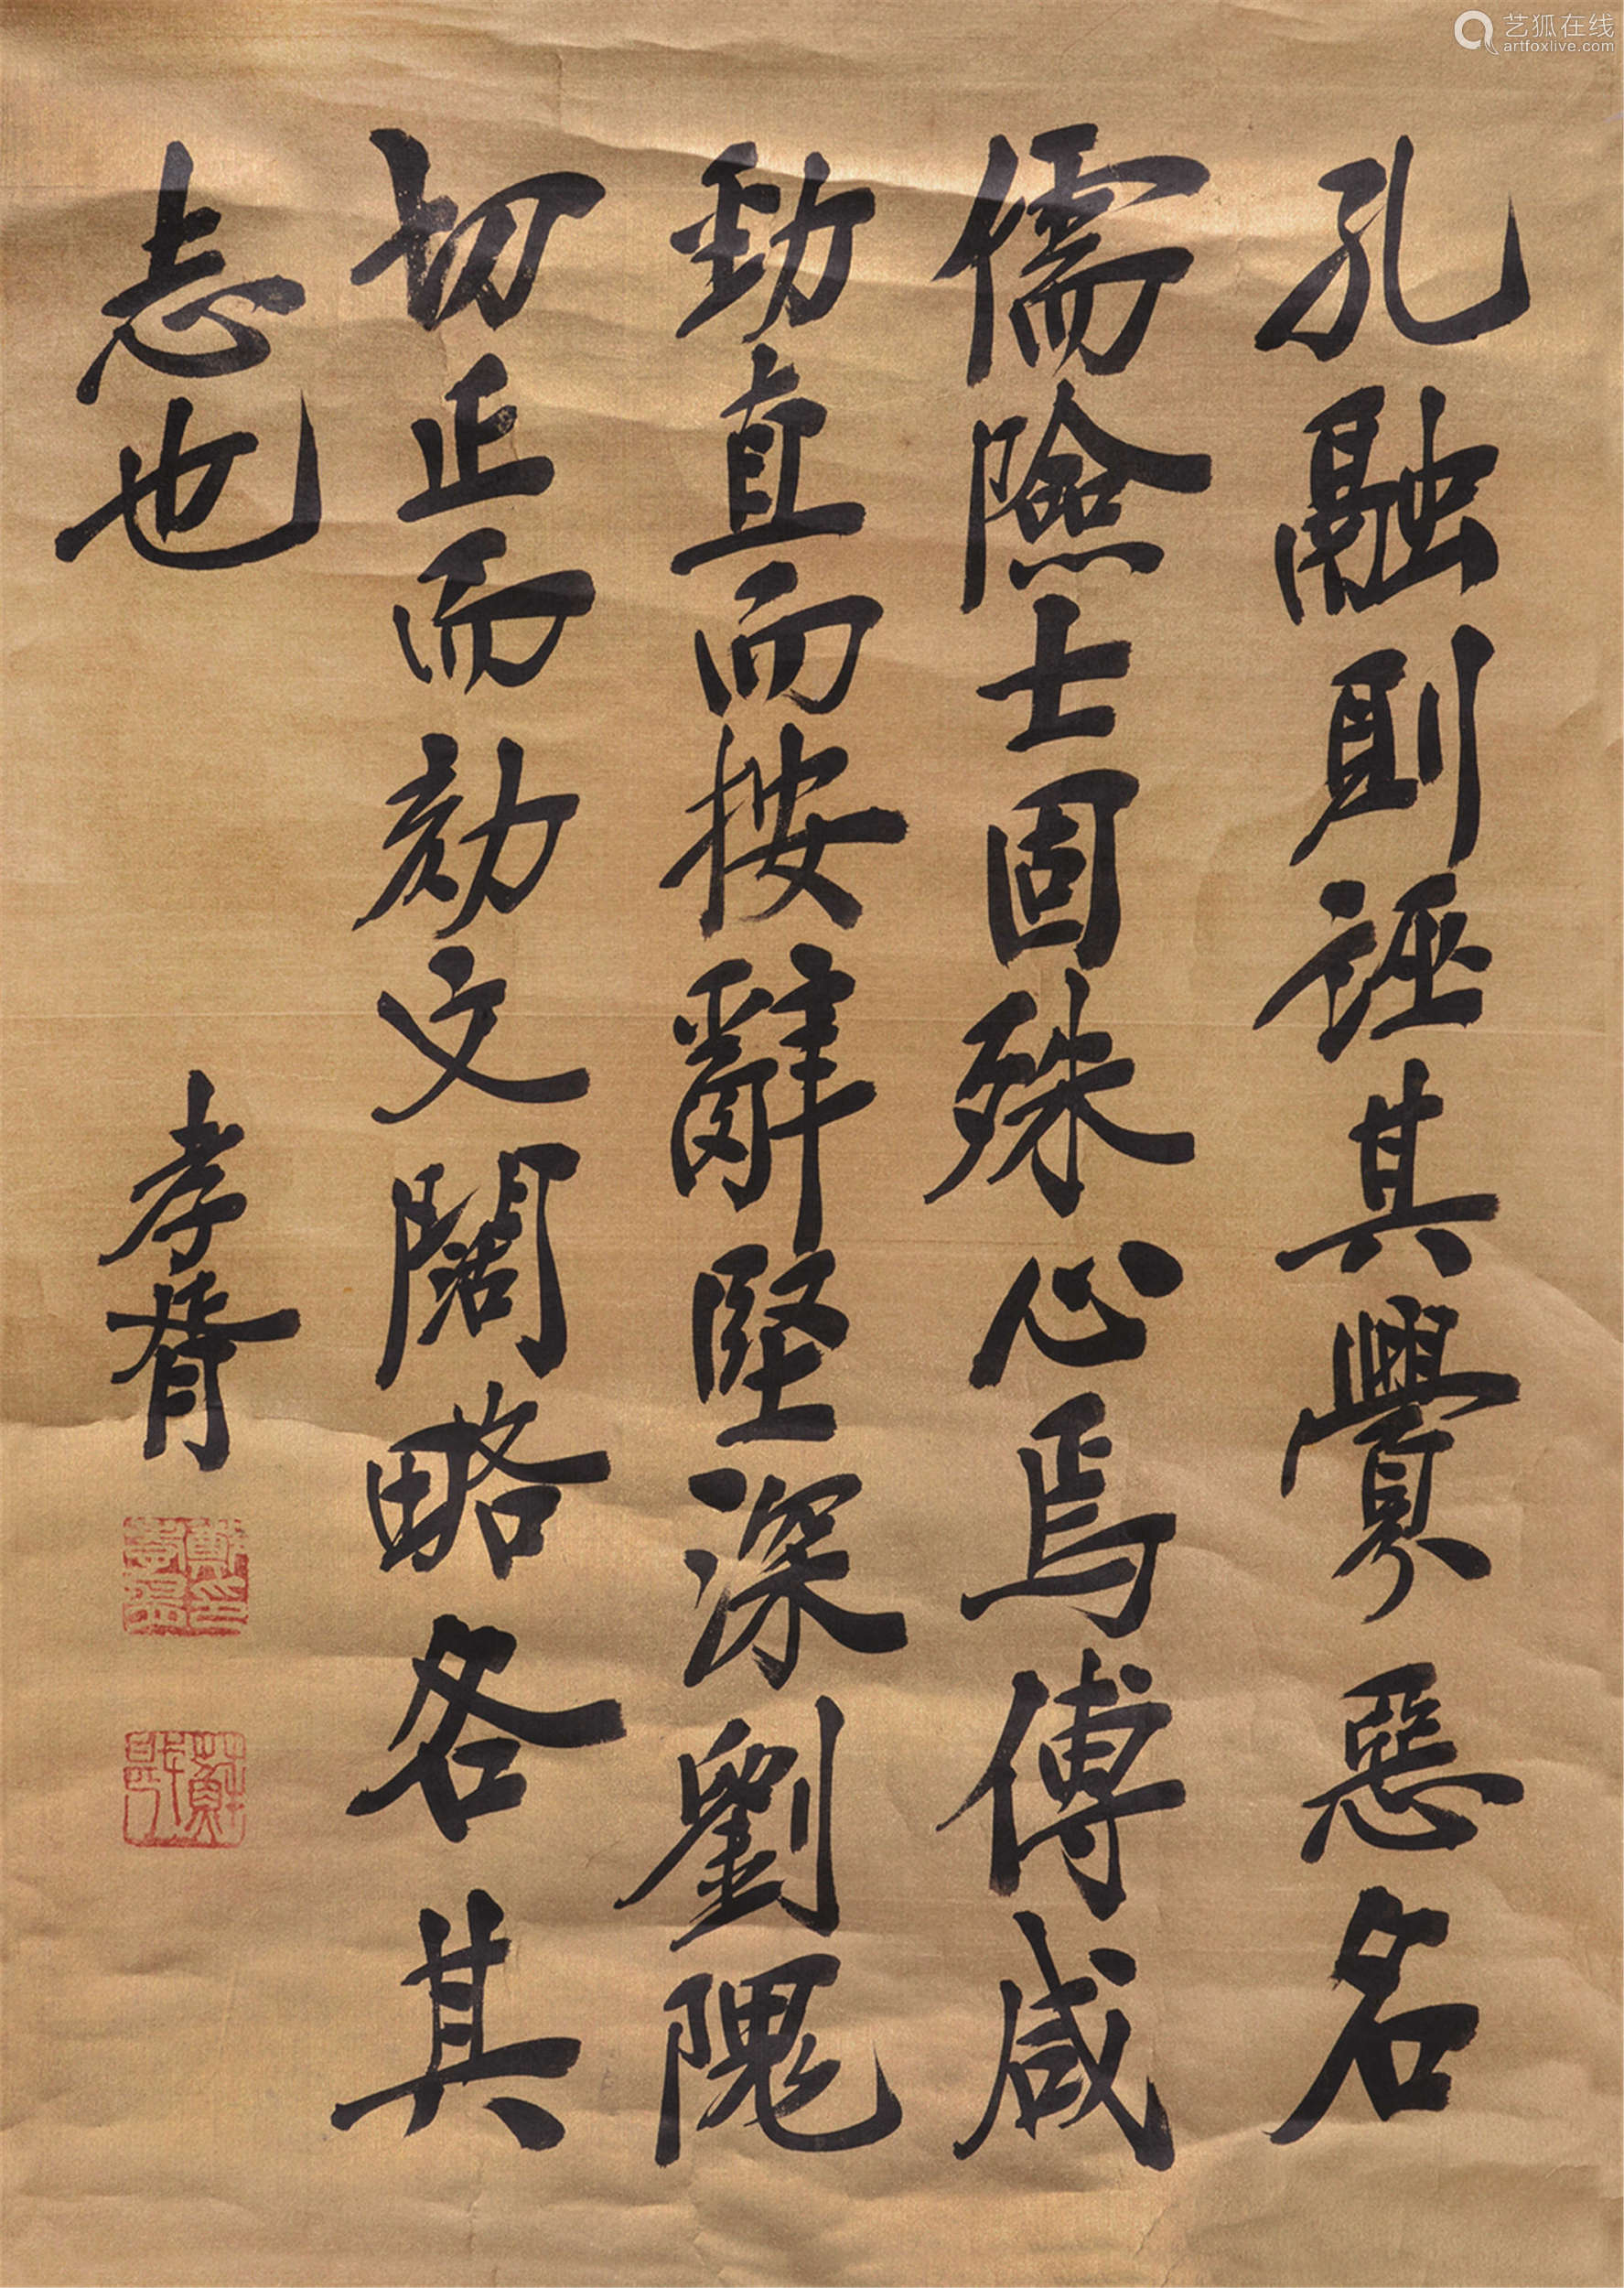 孔融則誣其釁惡名
儒險士固殊心焉傅咸
勁直而按辭堅深劉隗
切正而劾文闊略各其
志也
孝胥
鄭印孝胥
艺狐在线
artfoxlive.com